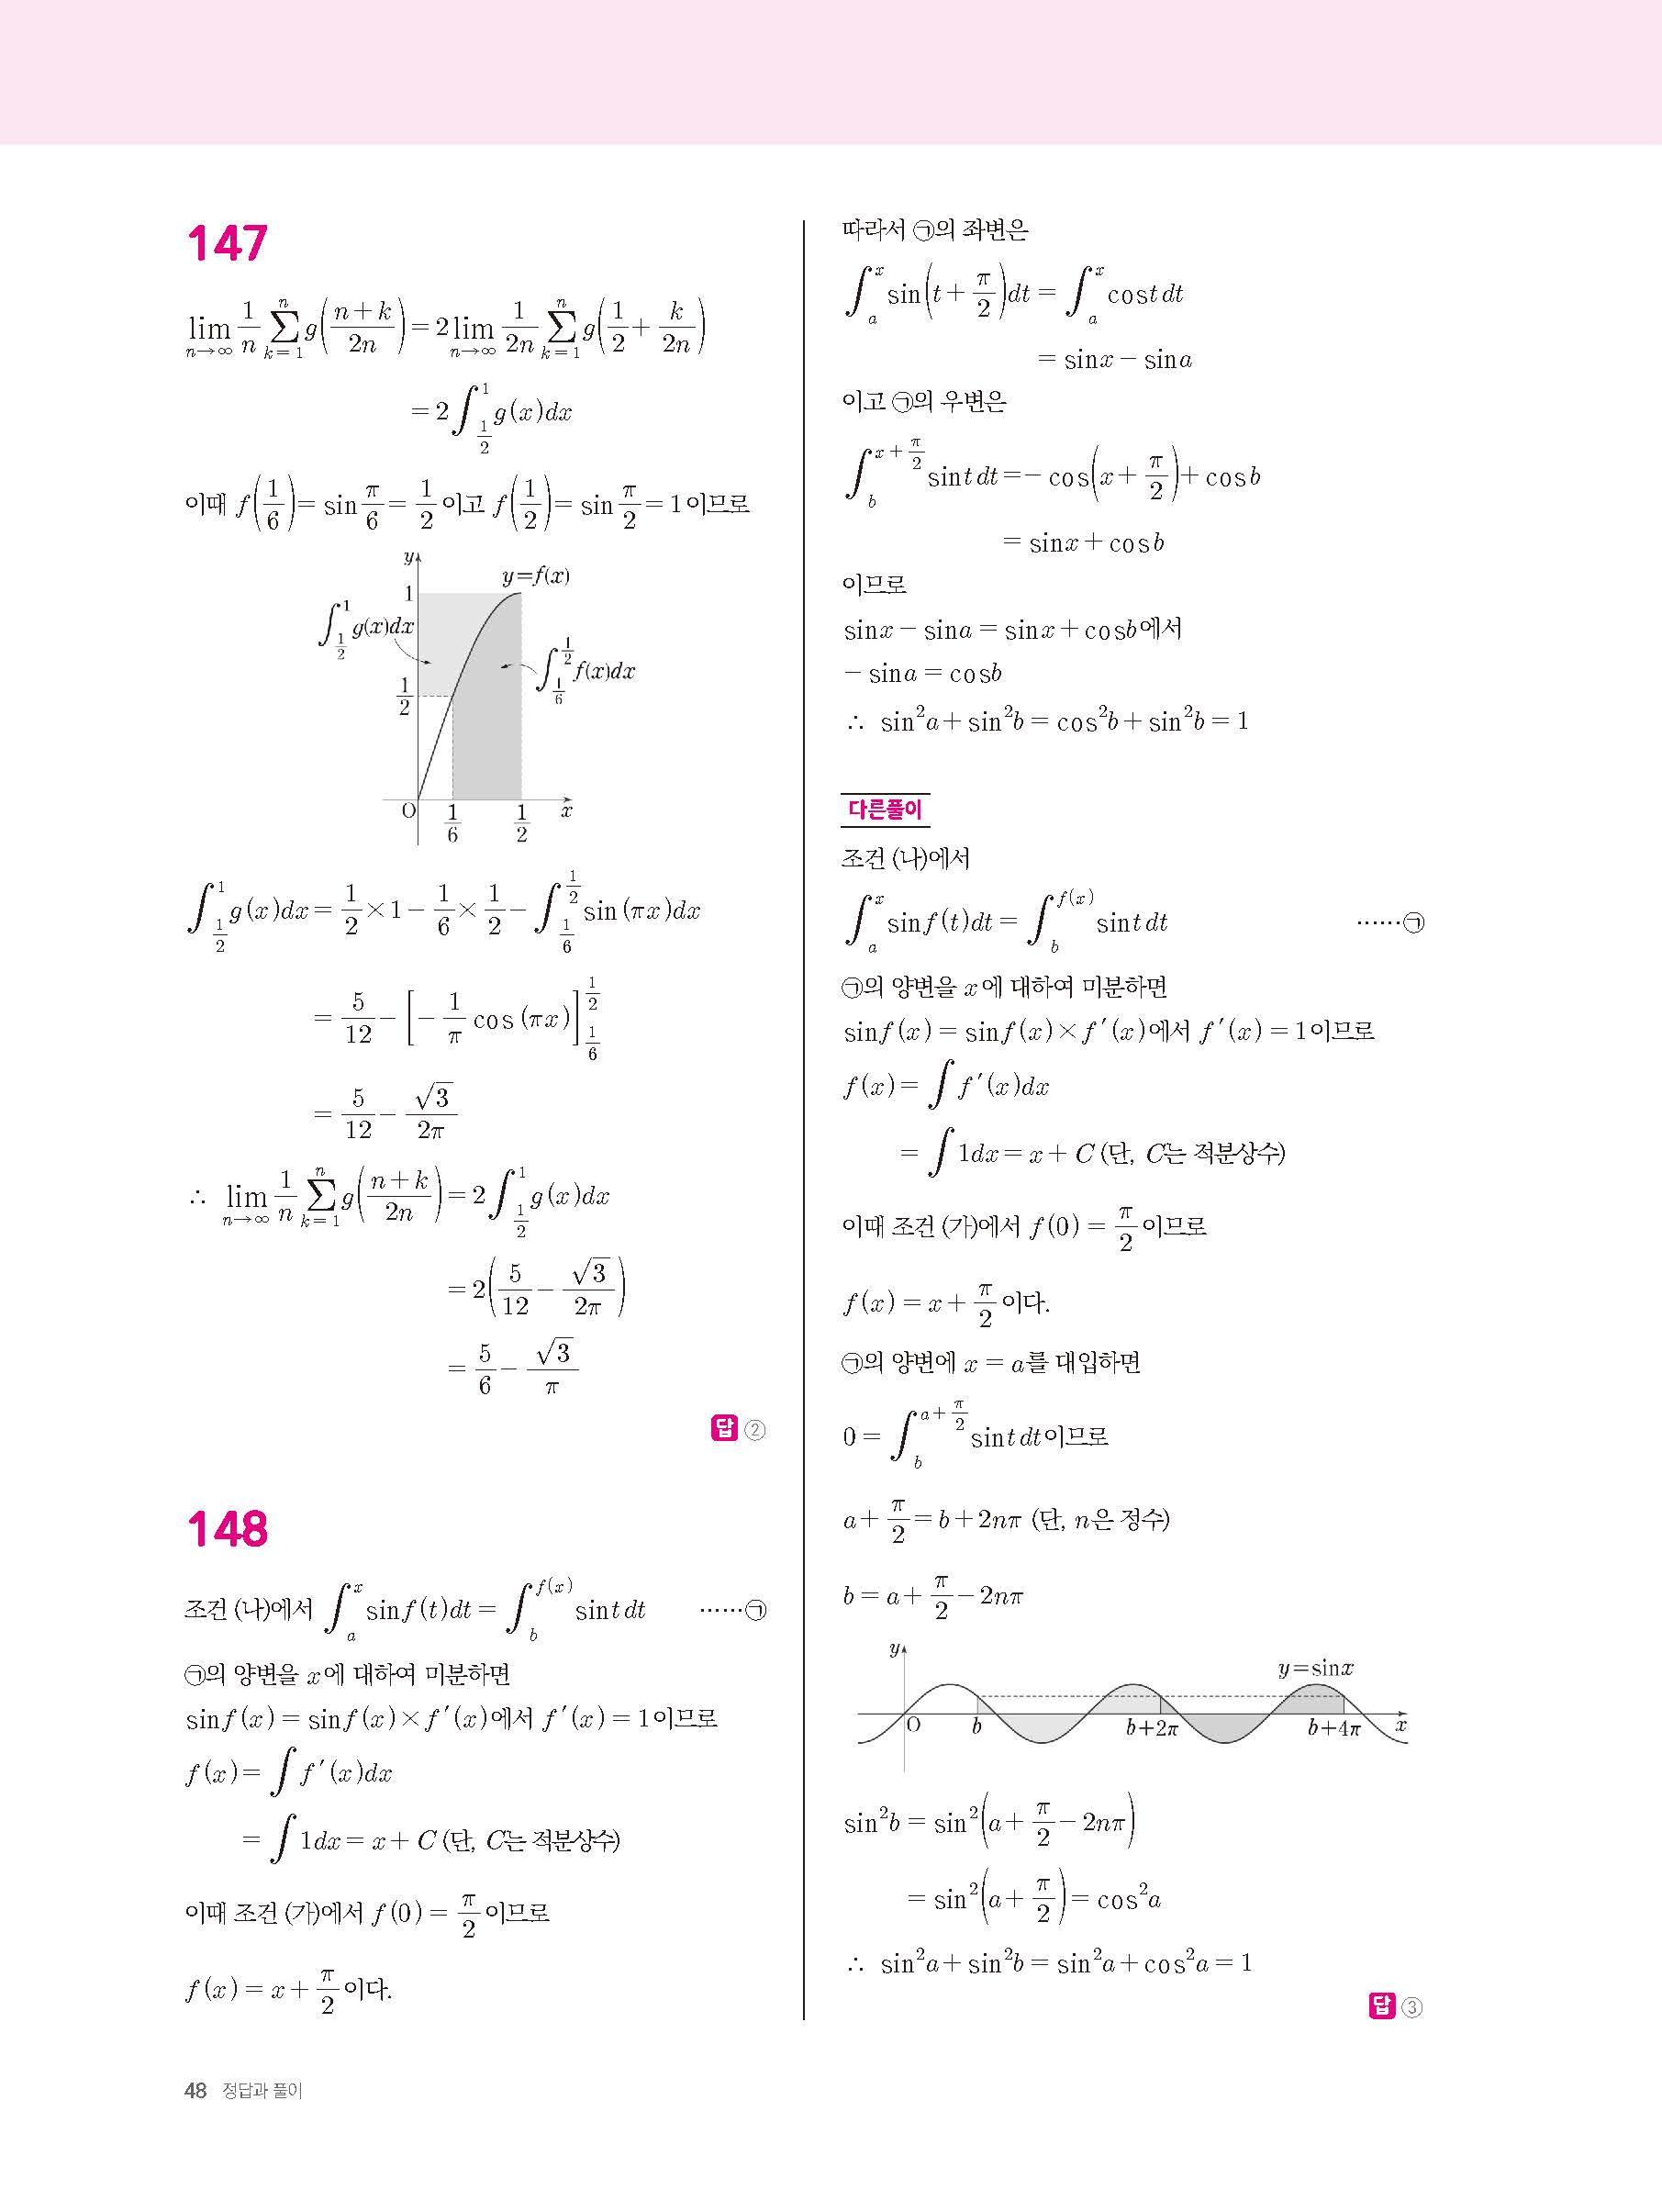 147
$\lim_{n\to\infty}\frac{1}{n}\sum_{k=1}^{n}g\left(\frac{n+k}{2n}\right)=2\lim_{n\to\infty}\frac{1}{2n}\sum_{k=1}^{n}g\left(\frac{1}{2}+\frac{k}{2n}\right)$
$=2\int_{\frac{1}{2}}^{1}g(x)dx$
이때 $f\left(\frac{1}{6}\right)=\sin\frac{\pi}{6}=\frac{1}{2}$이고 $f\left(\frac{1}{2}\right)=\sin\frac{\pi}{2}=1$이므로
y
y=f(x)
1
$\int_{\frac{1}{2}}^{1}g(x)dx$
$\int_{\frac{1}{6}}^{\frac{1}{2}}f(x)dx$
$\frac{1}{2}$
O $\frac{1}{6}$ $\frac{1}{2}$ x
$\int_{\frac{1}{2}}^{1}g(x)dx=\frac{1}{2}\times1-\frac{1}{6}\times\frac{1}{2}-\int_{\frac{1}{6}}^{\frac{1}{2}}\sin(\pi x)dx$
$=\frac{5}{12}-\left[-\frac{1}{\pi}\cos(\pi x)\right]_{\frac{1}{6}}^{\frac{1}{2}}$
$=\frac{5}{12}-\frac{\sqrt{3}}{2\pi}$
∴ $\lim_{n\to\infty}\frac{1}{n}\sum_{k=1}^{n}g\left(\frac{n+k}{2n}\right)=2\int_{\frac{1}{2}}^{1}g(x)dx$
$=2\left(\frac{5}{12}-\frac{\sqrt{3}}{2\pi}\right)$
$=\frac{5}{6}-\frac{\sqrt{3}}{\pi}$
답 ②
148
조건 (나)에서 $\int_{a}^{x}\sin f(t)dt=\int_{b}^{f(x)}\sin tdt$ ……㉠
㉠의 양변을 x에 대하여 미분하면
$\sin f(x)=\sin f(x)\times f'(x)$에서 $f'(x)=1$이므로
$f(x)=\int f'(x)dx$
$=\int 1dx=x+C$ (단, C는 적분상수)
이때 조건 (가)에서 $f(0)=\frac{\pi}{2}$이므로
$f(x)=x+\frac{\pi}{2}$이다.
따라서 ㉠의 좌변은
$\int_{a}^{x}\sin\left(t+\frac{\pi}{2}\right)dt=\int_{a}^{x}\cos tdt$
$=\sin x-\sin a$
이고 ㉠의 우변은
$\int_{b}^{x+\frac{\pi}{2}}\sin tdt=-\cos\left(x+\frac{\pi}{2}\right)+\cos b$
$=\sin x+\cos b$
이므로
$\sin x-\sin a=\sin x+\cos b$에서
$-\sin a=\cos b$
∴ $\sin^2a+\sin^2b=\cos^2b+\sin^2b=1$
다른풀이
조건 (나)에서
$\int_{a}^{x}\sin f(t)dt=\int_{b}^{f(x)}\sin tdt$ ……㉠
㉠의 양변을 x에 대하여 미분하면
$\sin f(x)=\sin f(x)\times f'(x)$에서 $f'(x)=1$이므로
$f(x)=\int f'(x)dx$
$=\int 1dx=x+C$ (단, C는 적분상수)
이때 조건 (가)에서 $f(0)=\frac{\pi}{2}$이므로
$f(x)=x+\frac{\pi}{2}$이다.
㉠의 양변에 $x=a$를 대입하면
$0=\int_{b}^{a+\frac{\pi}{2}}\sin tdt$이므로
$a+\frac{\pi}{2}=b+2n\pi$ (단, n은 정수)
$b=a+\frac{\pi}{2}-2n\pi$
y
y=sinx
O b b+2π b+4π x
$\sin^2b=\sin^2\left(a+\frac{\pi}{2}-2n\pi\right)$
$=\sin^2\left(a+\frac{\pi}{2}\right)=\cos^2a$
∴ $\sin^2a+\sin^2b=\sin^2a+\cos^2a=1$
답 ③
48 정답과 풀이